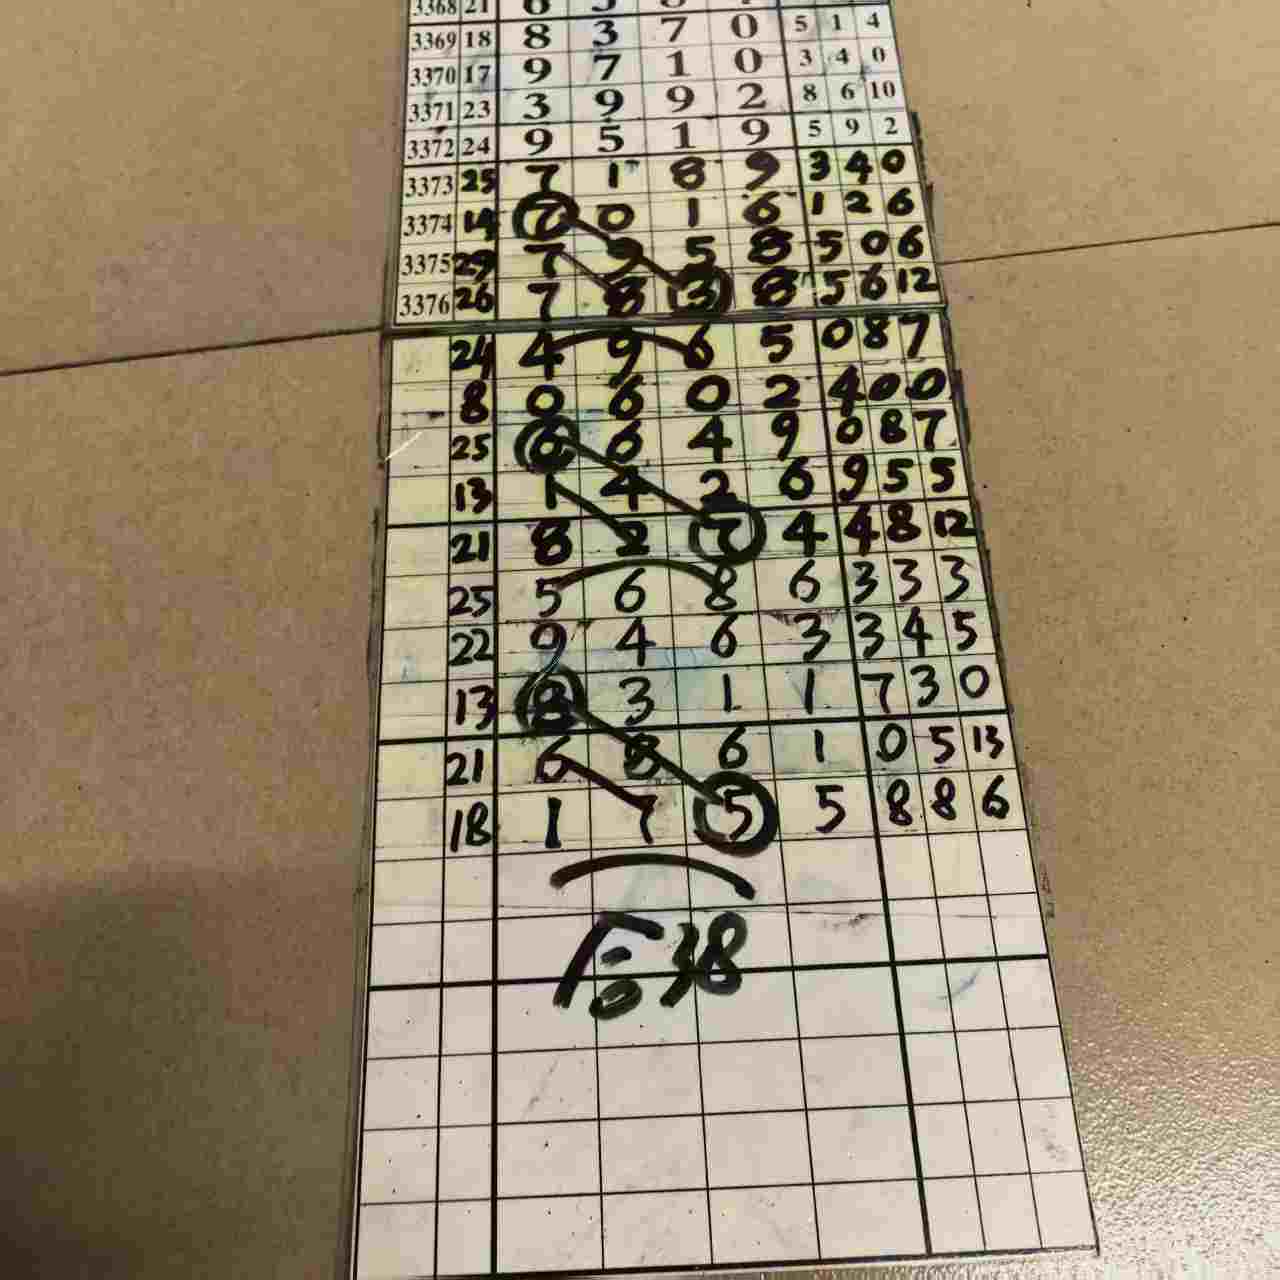 3368 21
3369 18 8 3 7 0 5 1 4
3370 17 9 7 1 0 3 4 0
3371 23 3 9 9 2 8 6 10
3372 24 9 5 1 9 5 9 2
3373 25 7 1 8 9 3 4 0
3374 14 7 0 1 6 1 2 6
3375 29 7 9 5 8 5 0 6
3376 26 7 8 3 8 5 6 12
24 4 9 6 5 0 8 7
8 0 6 0 2 4 0 0
25 6 6 4 9 0 8 7
13 1 4 2 6 9 5 5
21 8 2 7 4 4 8 12
25 5 6 8 6 3 3 3
22 9 4 6 3 3 4 5
13 8 3 1 1 7 3 0
21 6 8 6 1 0 5 13
18 1 7 5 5 8 8 6
38